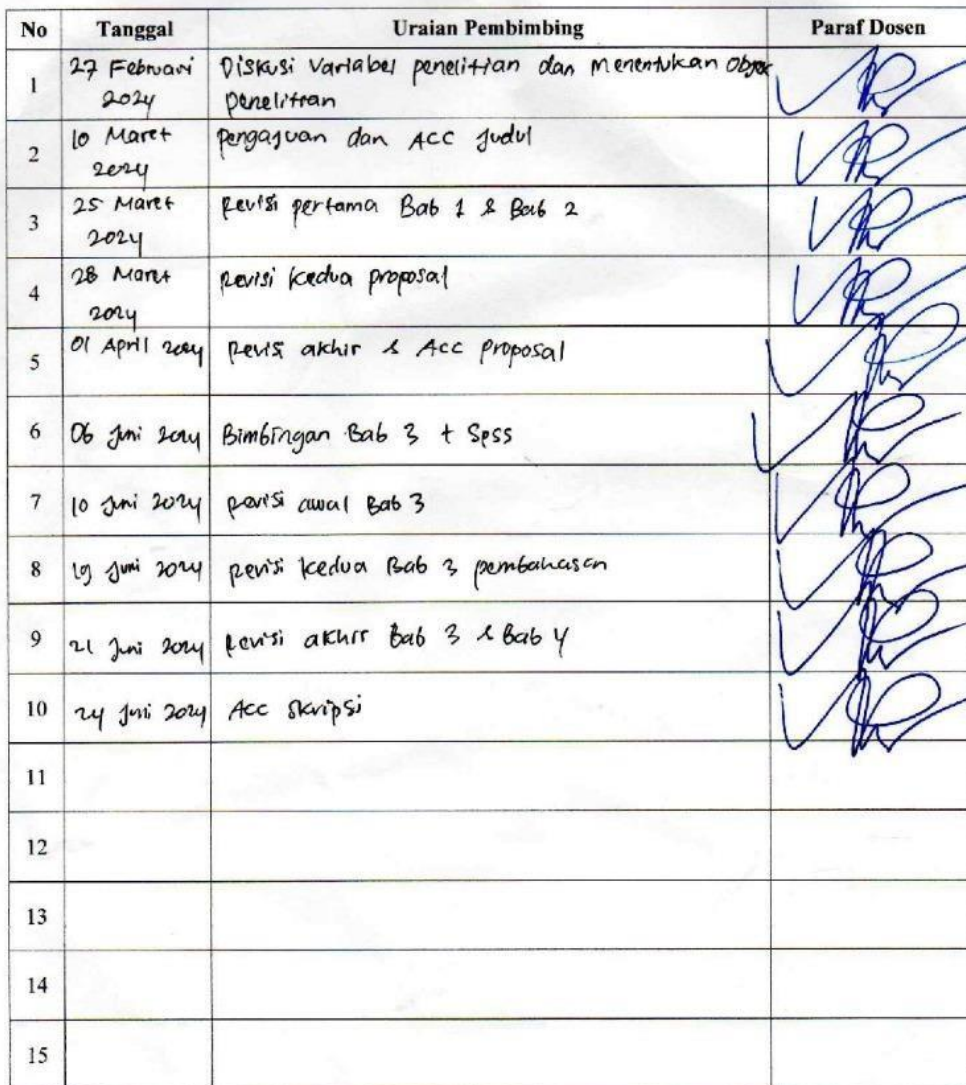 No Tanggal Uraian Pembimbing Paraf Dosen
1 27 Februari Diskusi Variabel penelitian dan Menentukan Objek
2024 penelitian
2 10 Maret pengajuan dan ACC Judul
2024
3 25 Maret Revisi pertama Bab 1 & Bab 2
2024
4 28 Maret Revisi kedua proposal
2024
5 01 April 2024 Revisi akhir & Acc proposal
6 06 Juni 2024 Bimbingan Bab 3 + Spss
7 10 Juni 2024 Revisi awal Bab 3
8 19 Juni 2024 Revisi kedua Bab 3 pembahasan
9 21 Juni 2024 Revisi akhir Bab 3 & Bab 4
10 24 Juni 2024 Acc Skripsi
11
12
13
14
15